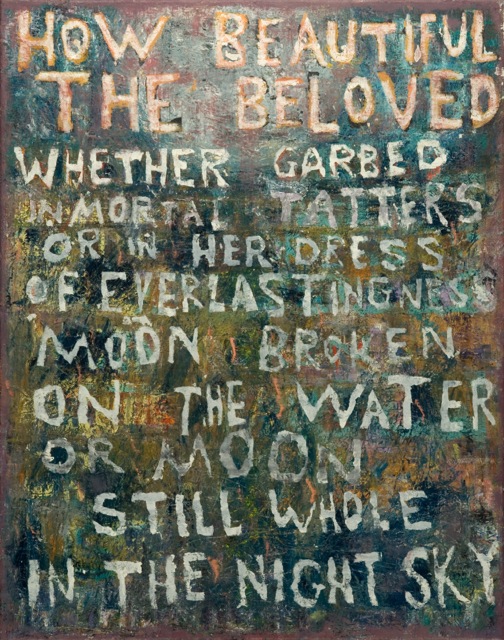 HOW BEAUTIFUL
THE BELOVED
WHETHER GARBED
IN MORTAL TATTERS
OR IN HER DRESS
OF EVERLASTINGNESS
MOON BROKEN
ON THE WATER
OR MOON
STILL WHOLE
IN THE NIGHT SKY